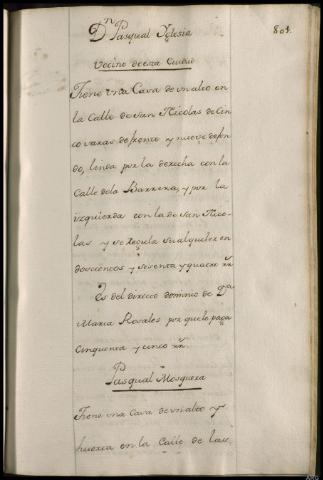 Dn. Pasqual Yglesia
801.
Vecino de esta Ciudad
Tiene vna Casa de vn alto en
la Calle de San Nicolas de Cin
co varas de frente y nueve de fon
do, linda por la derecha con la
Calle dela Barrera, y por la
izquierda con la de San Nico-
las y se regula su alquiler en
doscientos y sesenta y quatro rr.
Es del directo dominio de Da.
Maria Rosales por que le paga
cinquenta y cinco rr.
Pasqual Mosquera
Tiene vna Casa de vn alto y
huerta en la Calle de las